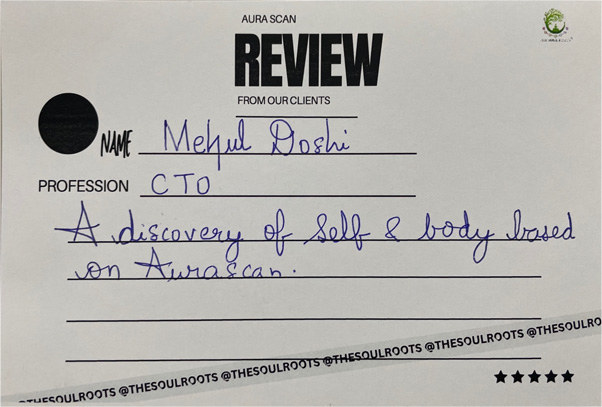 AURA SCAN
REVIEW
FROM OUR CLIENTS
NAME Mehul Doshi
PROFESSION CTO
A discovery of Self & body based
on Aurascan.
@THESOULROOTS @THESOULROOTS @THESOULROOTS @THESOULROOTS @THESOULRO